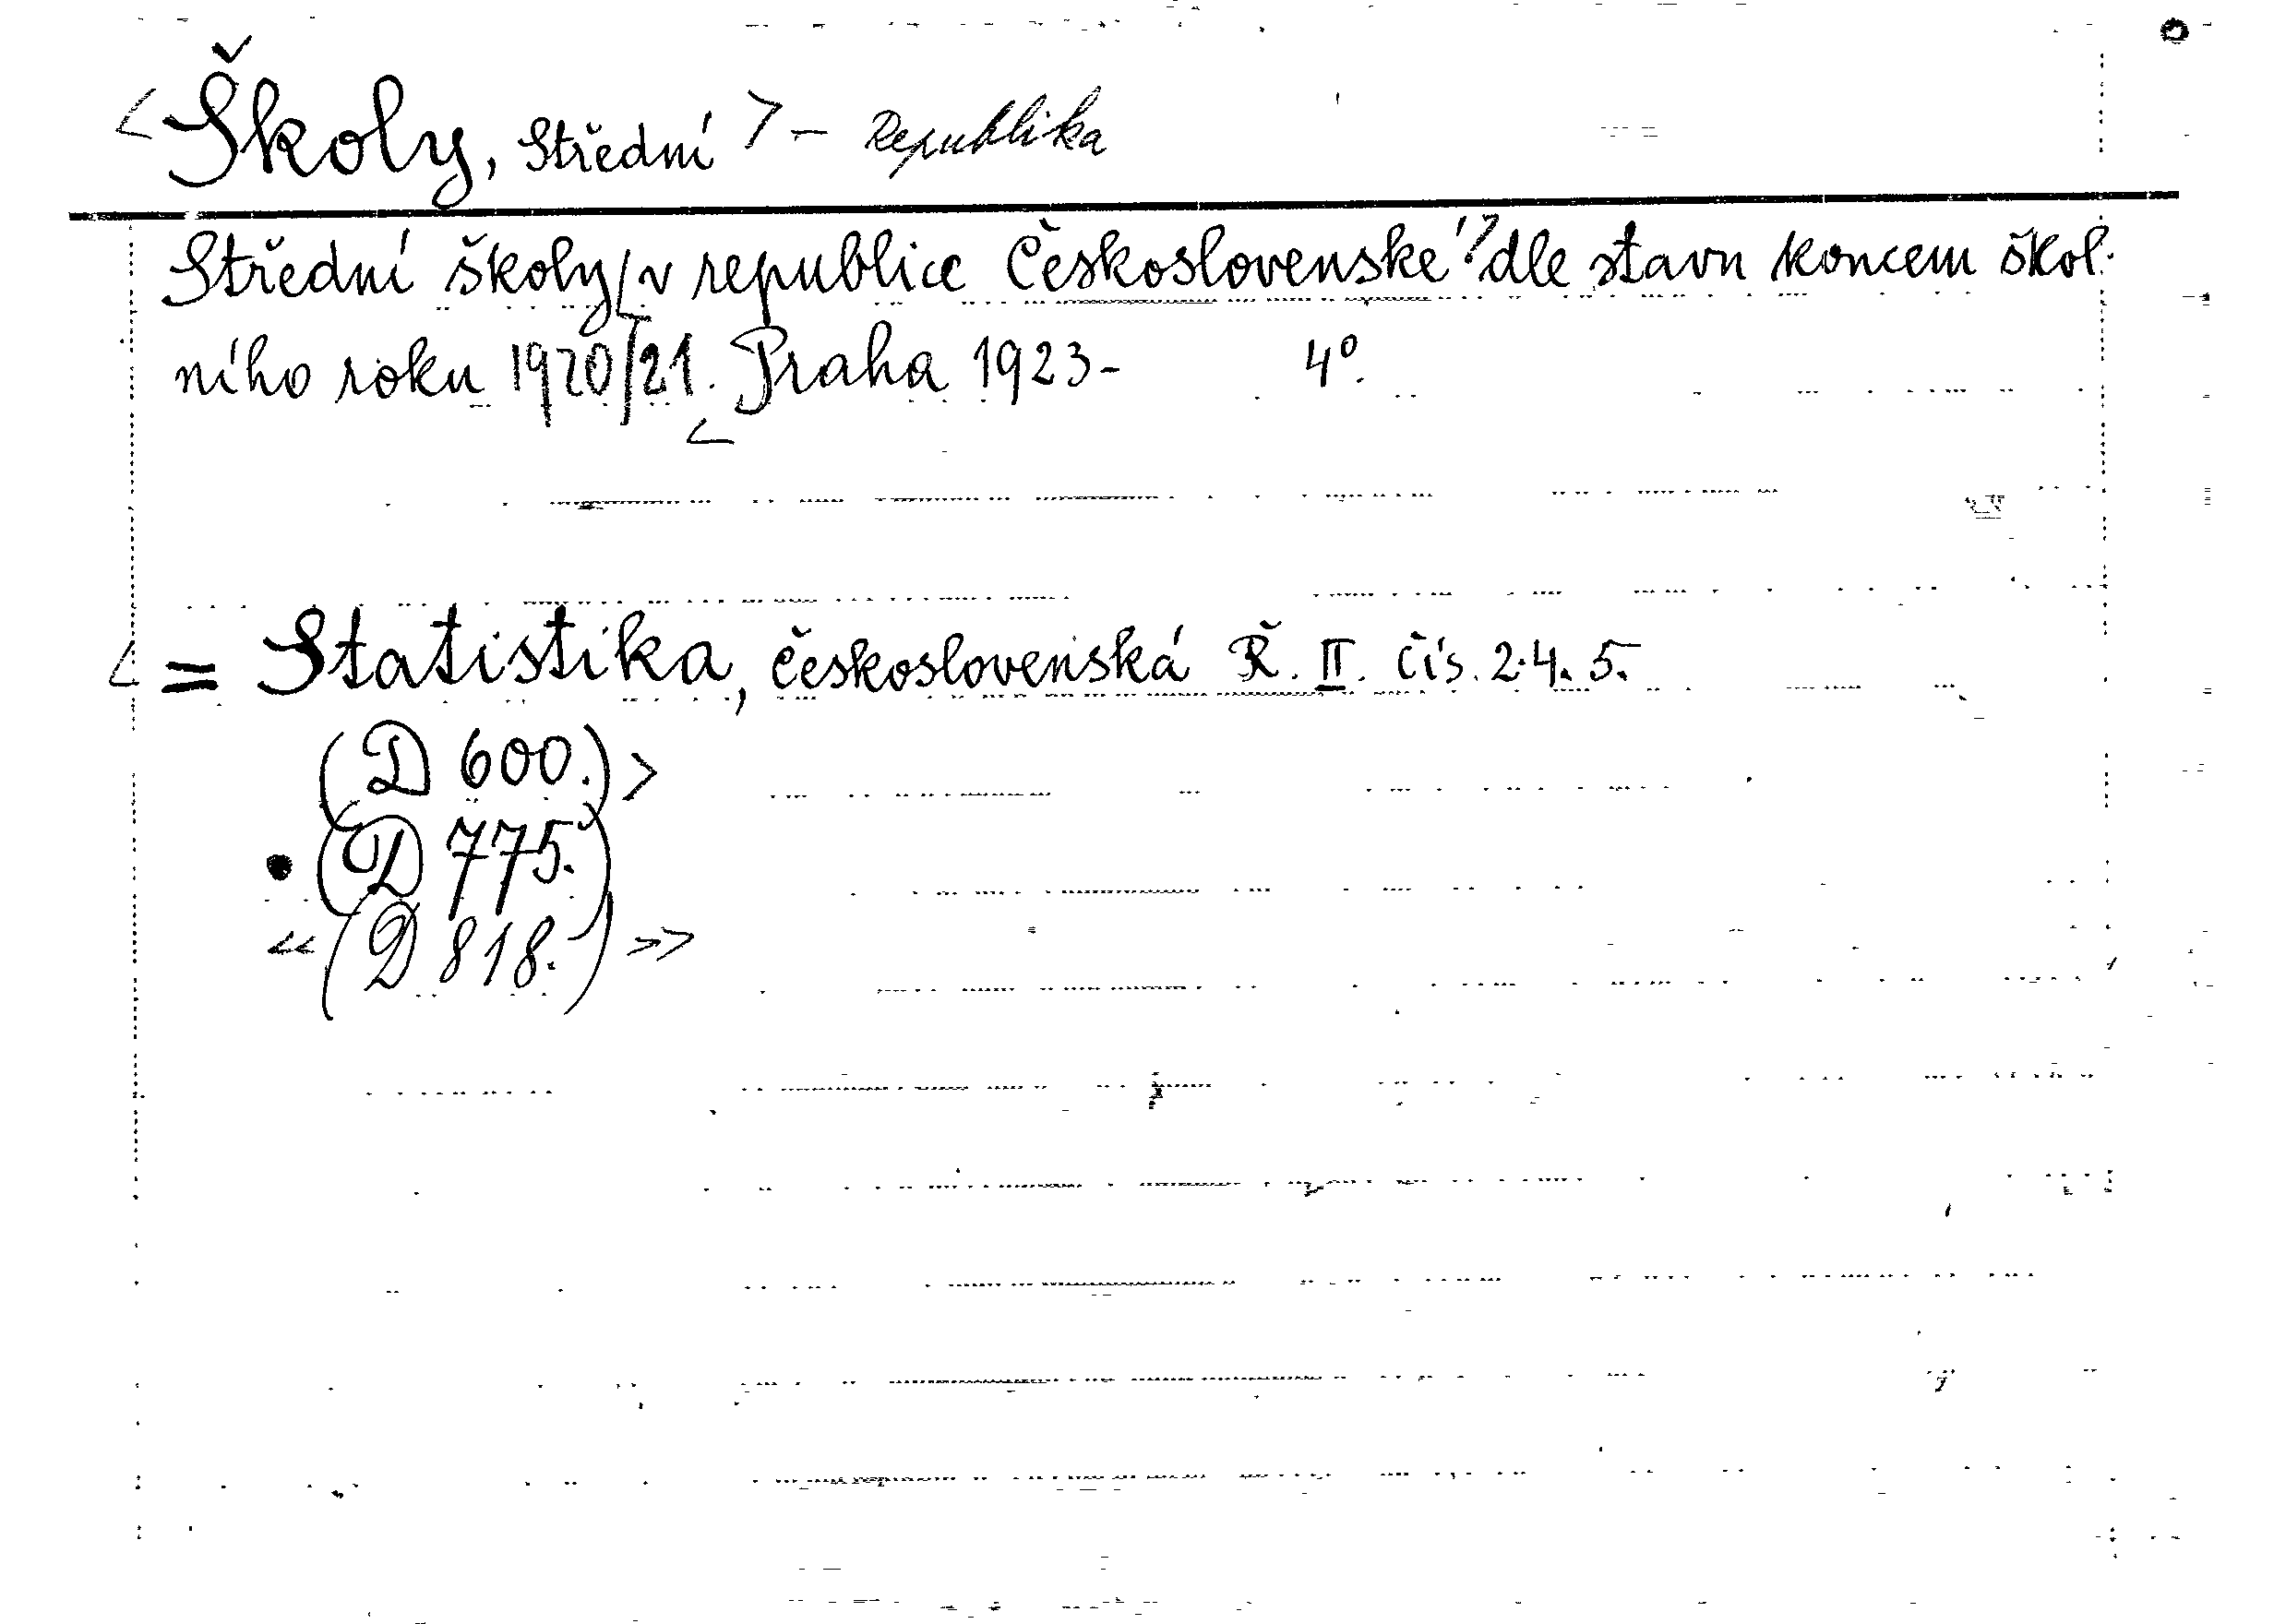 <Školy, Střední> - Republika
Střední školy v republice Československé dle stavu koncem škol-
ního roku 1920/21. Praha 1923- 4°.
<= Statistika, československá Ř. II. čís. 2.4.5.
(D 600.)>
•(D 775.)
«(D 818.)»